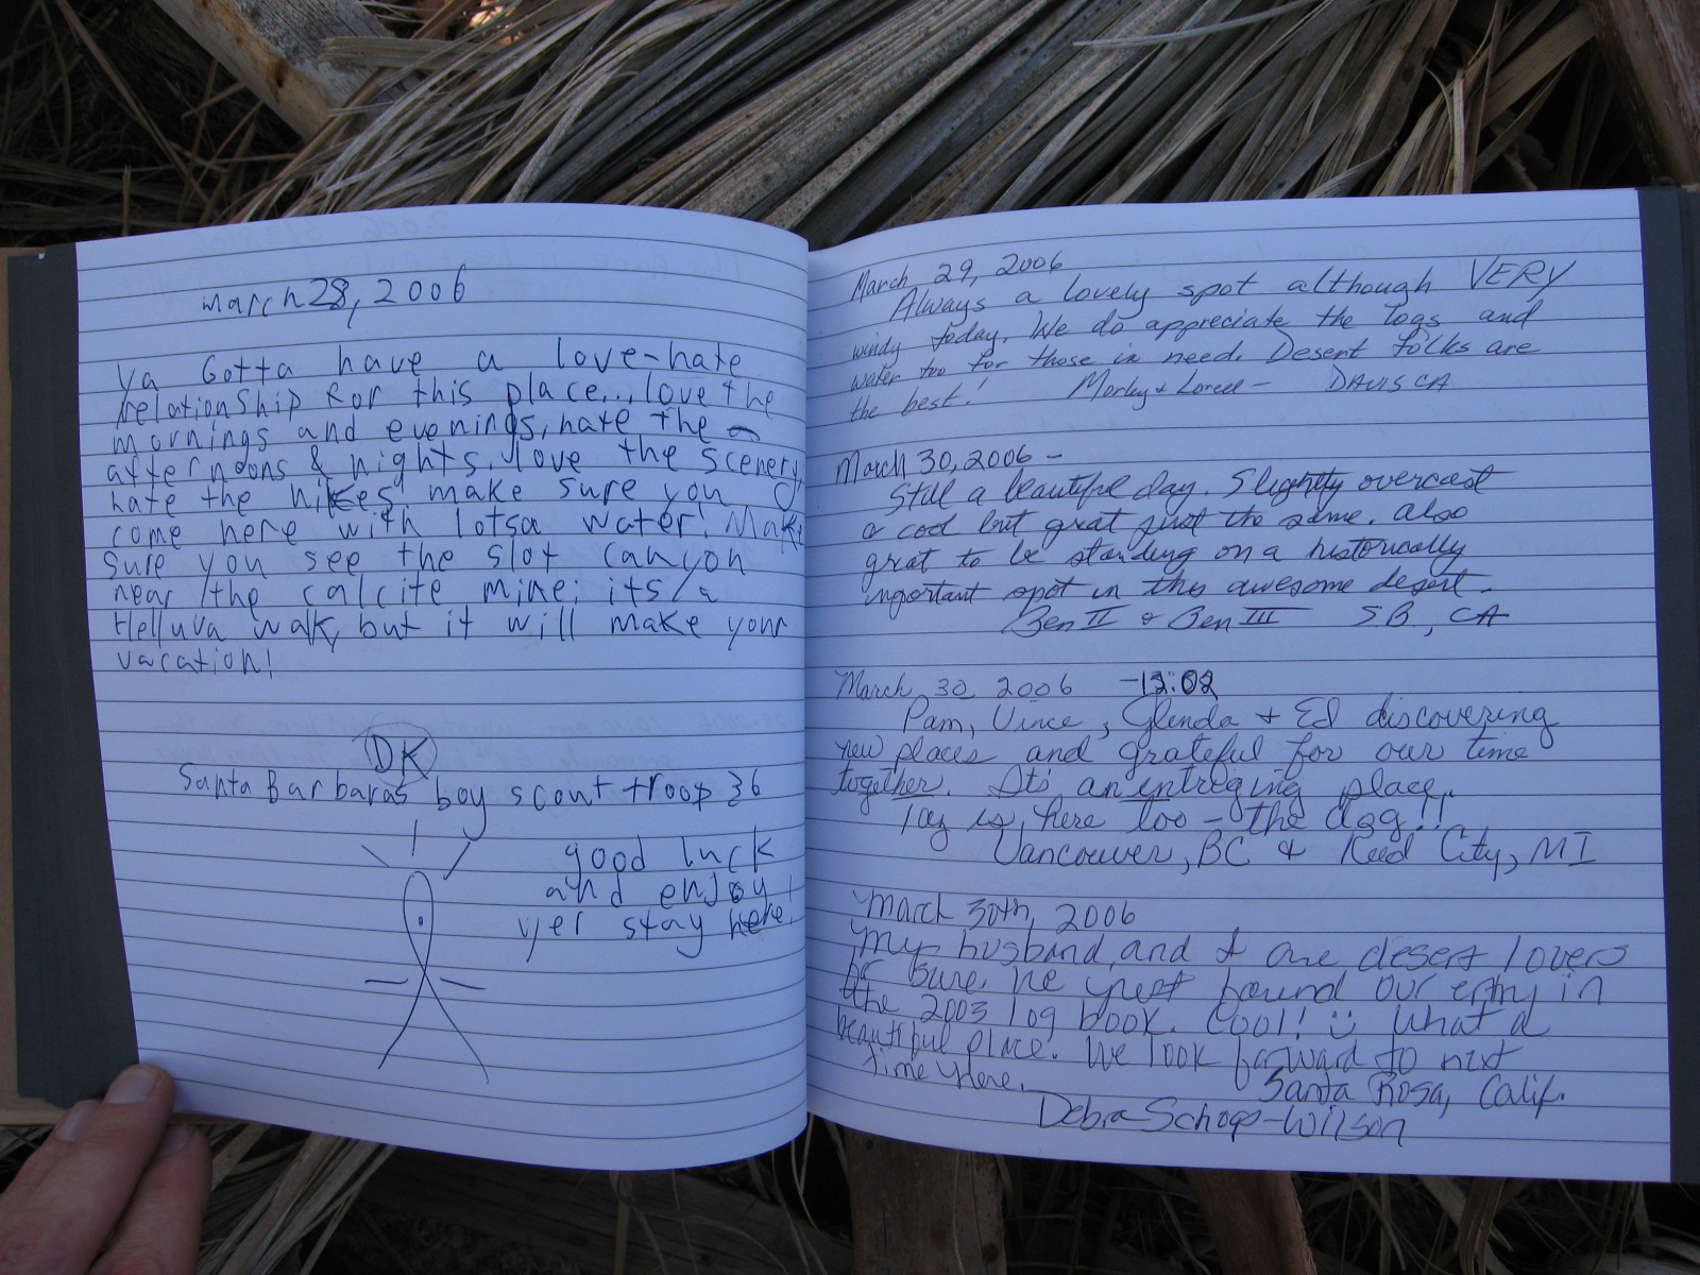 March 28, 2006
Ya Gotta have a love-hate
relationship for this place... love the
mornings and evenings, hate the
afternoons & nights. love the scenery,
hate the hikes. make sure you
come here with lotsa water. Make
Sure you see the slot canyon
near the calcite mine; its a
Helluva walk, but it will make your
vacation!
DK
Santa Barbaras boy scout troop 36
good luck
and enjoy
yer stay here!
March 29, 2006
Always a lovely spot although VERY
windy today. We do appreciate the logs and
water too for those in need. Desert folks are
the best! Morley & - DAVIS CA
March 30, 2006 -
Still a beautiful day. Slightly overcast
& cool but great just the same. Also
great to be standing on a historically
important spot in this awesome desert.
Ben II & Ben III SB, CA
March 30 2006 -12:02
Pam, Vince, Glenda & Ed discovering
new places and grateful for our time
together. It's an entreging place.
is here too - the dog!!
Vancouver, BC & Reed City, MI
March 30th, 2006
My husband and I are desert lovers
for sure. We just found our entry in
the 2003 log book. Cool! What a
beautiful place. We look forward to next
time here.
Santa Rosa, Calif.
Debra Schops-Wilson